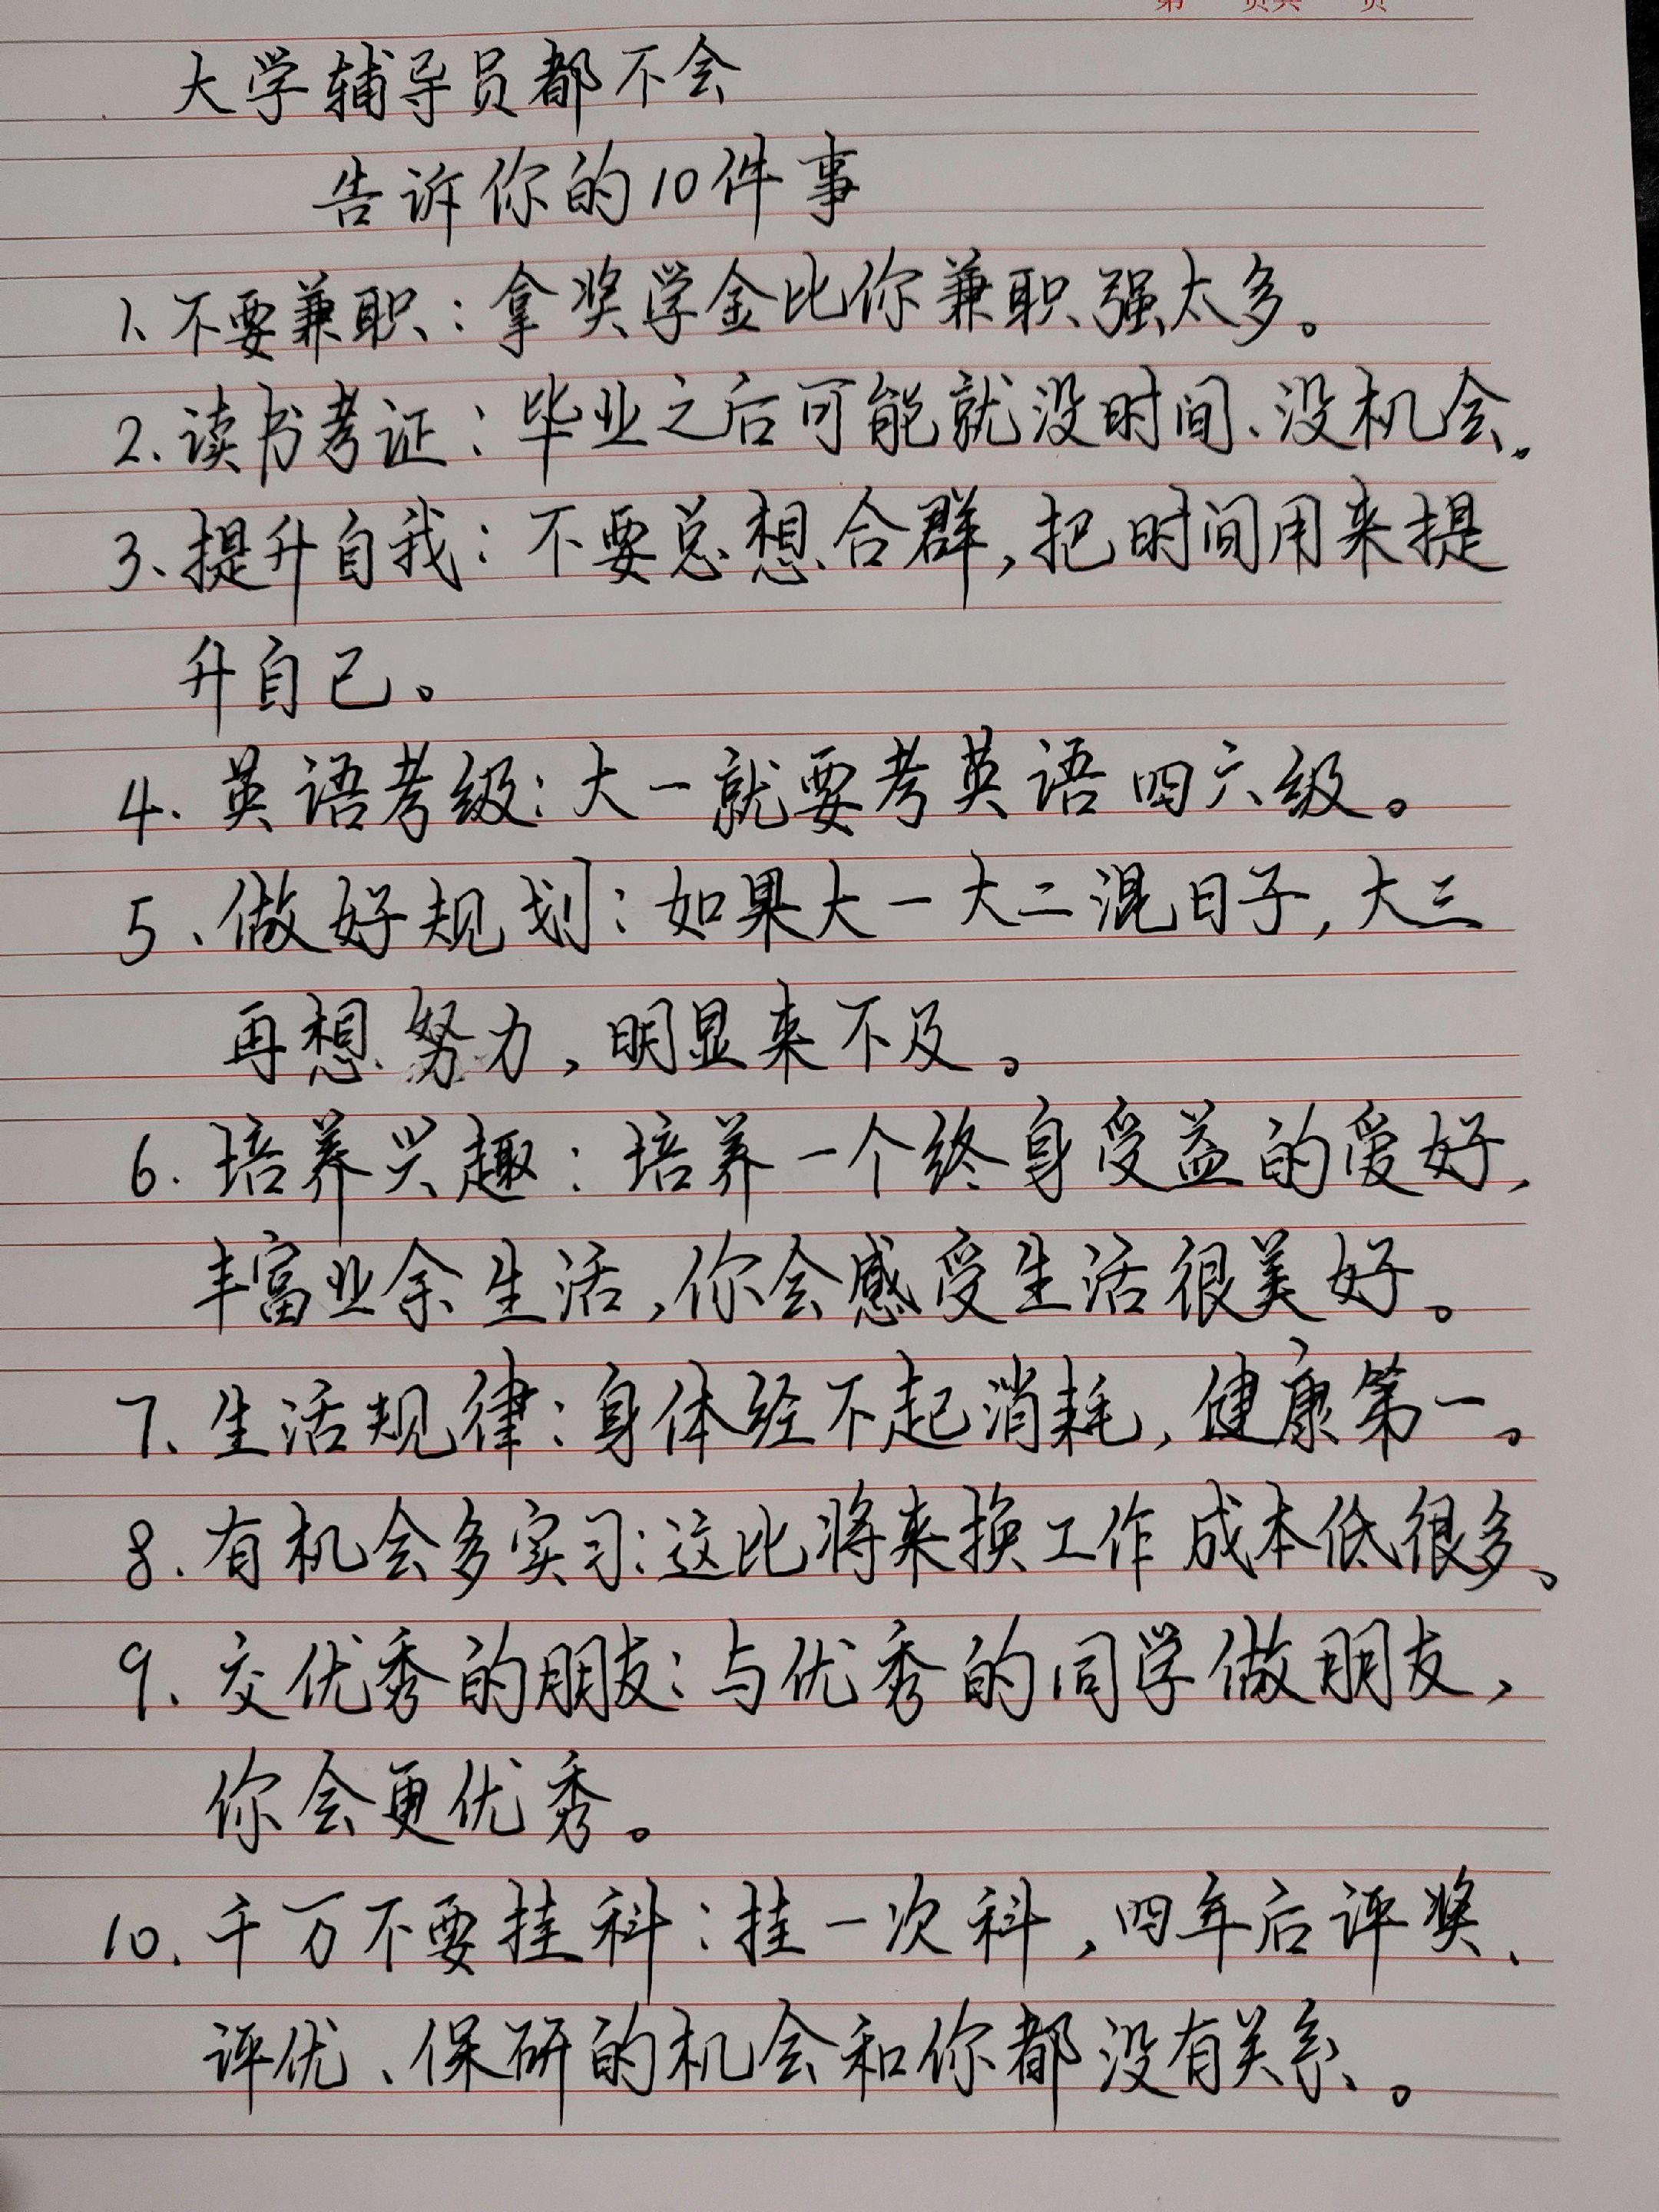 第 页共 页
大学辅导员都不会
告诉你的10件事
1、不要兼职：拿奖学金比你兼职强太多。
2.读书考证：毕业之后可能就没时间、没机会。
3、提升自我：不要总想合群，把时间用来提
升自己。
4. 英语考级：大一就要考英语四六级。
5、做好规划：如果大一大二混日子，大三
再想努力，明显来不及。
6. 培养兴趣：培养一个终身受益的爱好，
丰富业余生活，你会感受生活很美好。
7、生活规律：身体经不起消耗，健康第一。
8.有机会多实习：这比将来换工作成本低很多、
9、交优秀的朋友：与优秀的同学做朋友，
你会更优秀。
10.千万不要挂科：挂一次科，四年后评奖、
评优、保研的机会和你都没有关系。